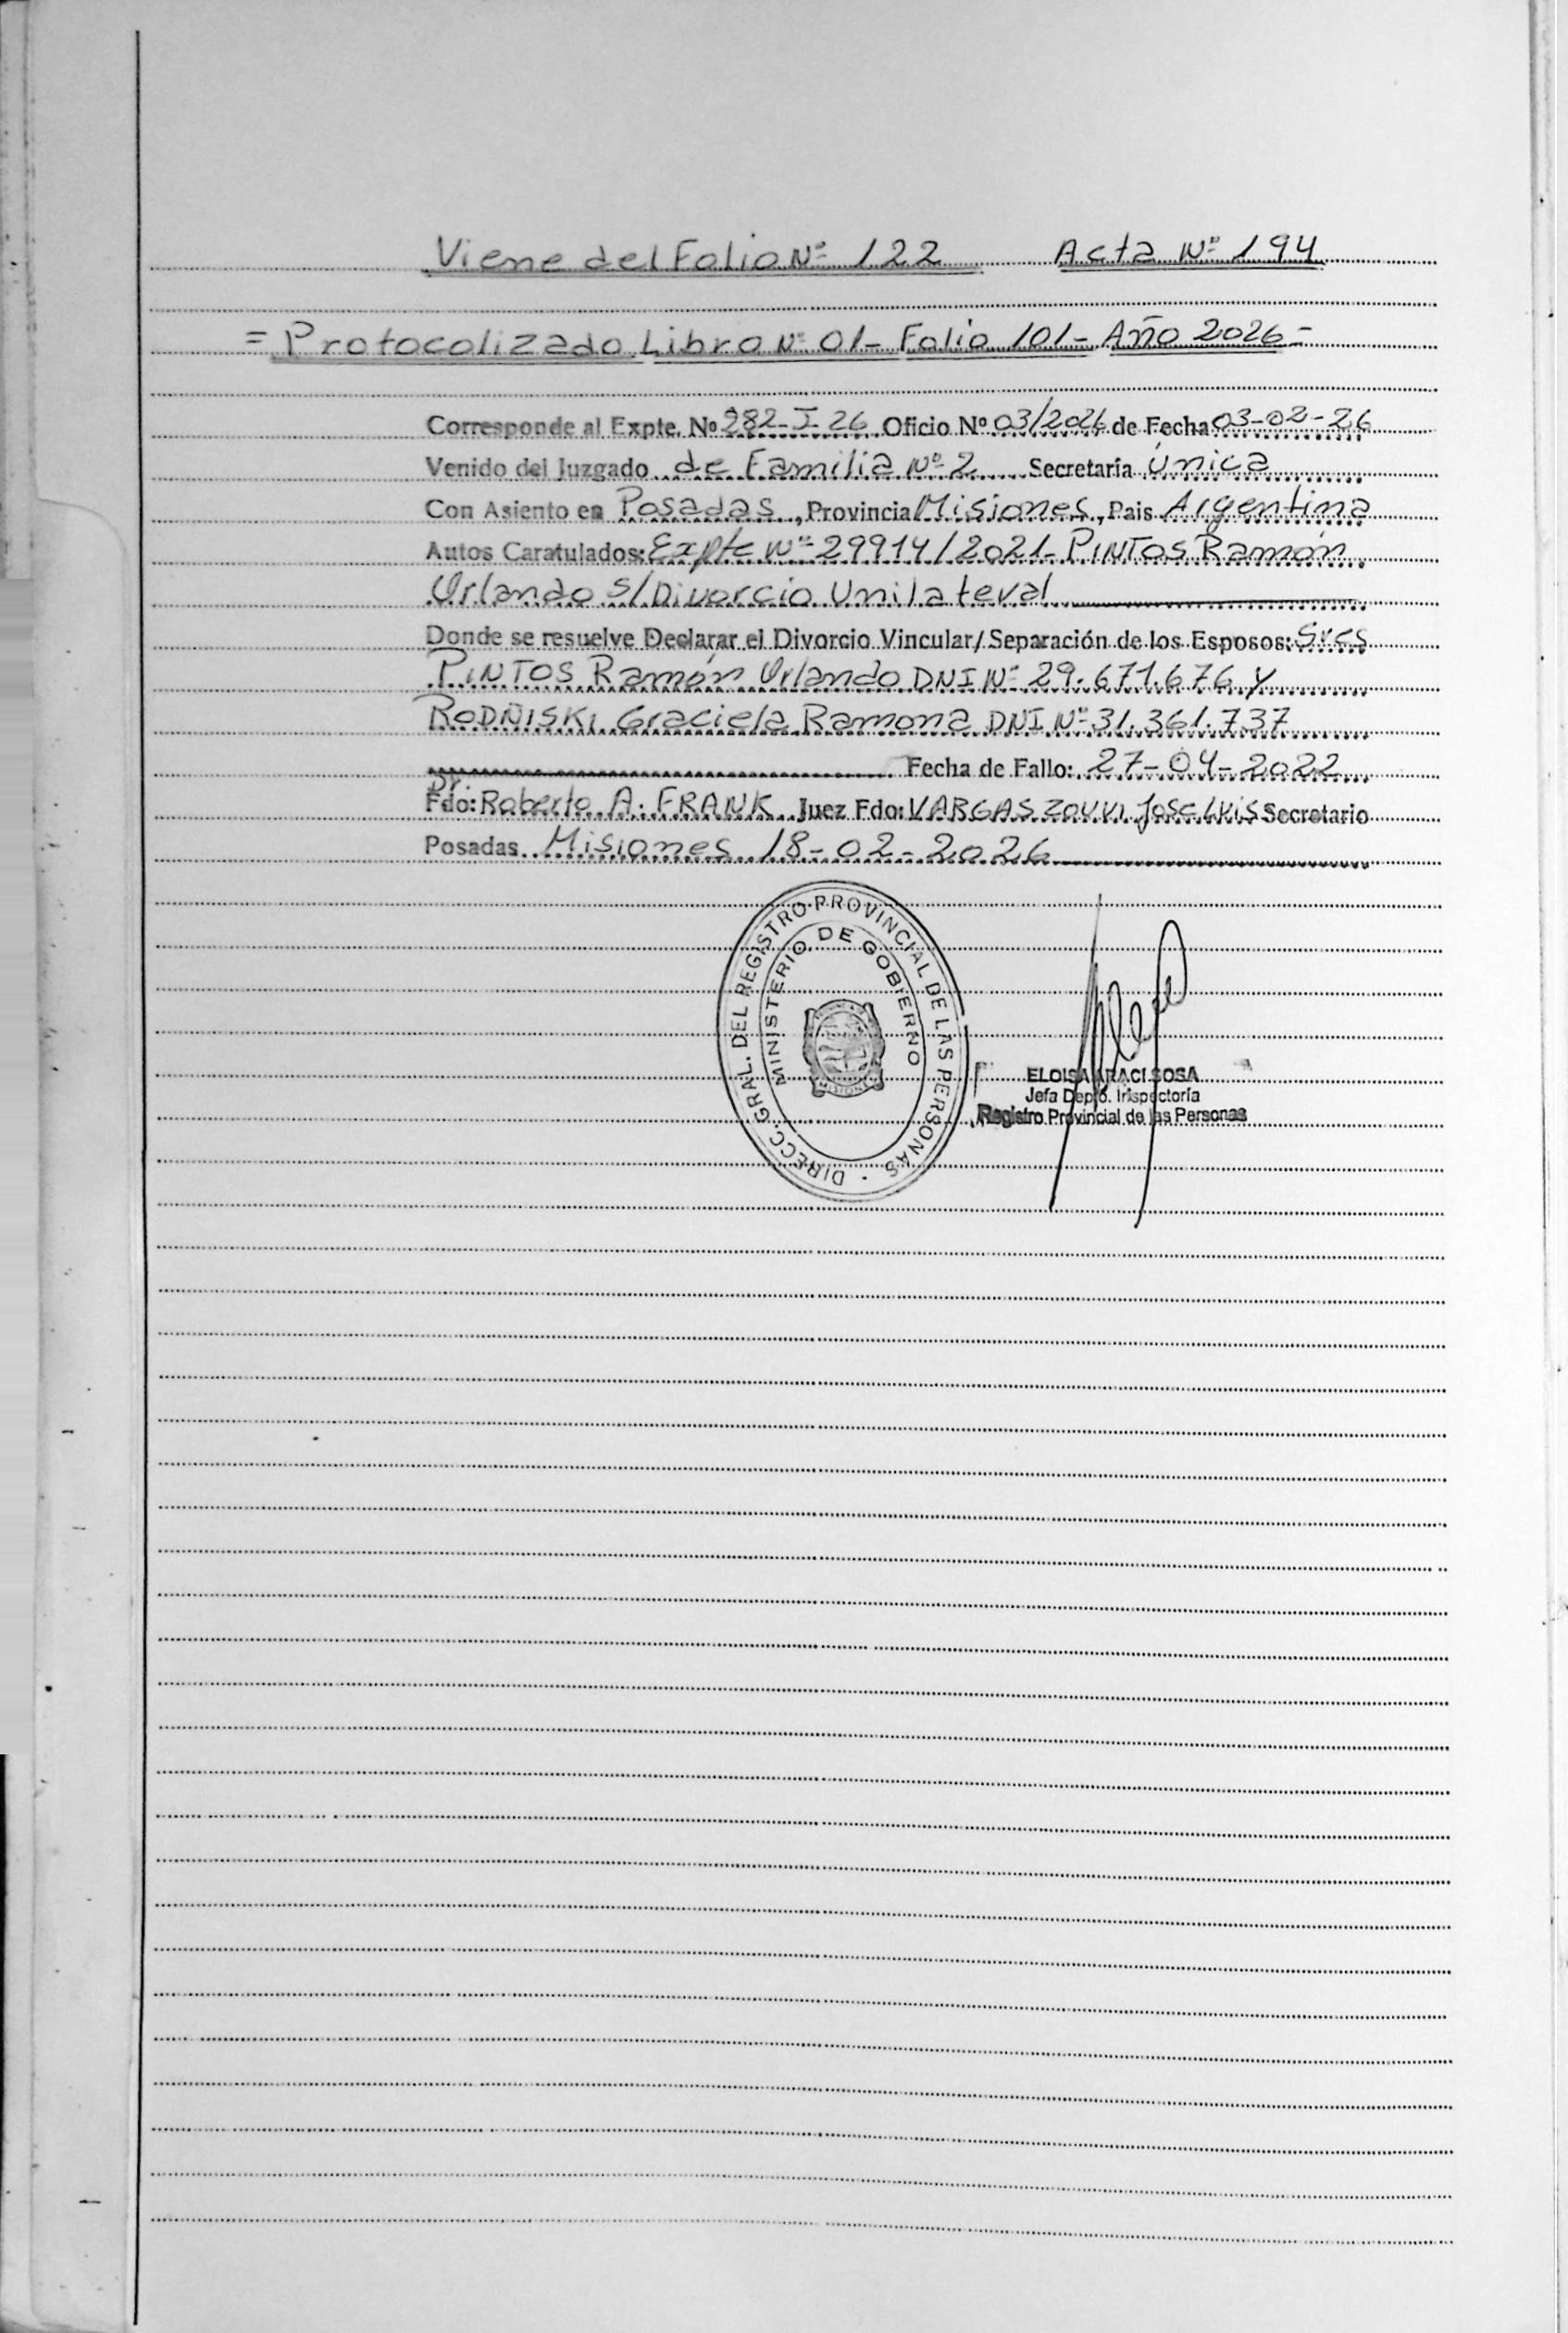 Viene del Folio Nº 122 Acta Nº 194
= Protocolizado Libro Nº 01 - Folio 101 - Año 2026 =
Corresponde al Expte. Nº 282-I-26 Oficio Nº 03/2026 de Fecha 03-02-26
Venido del Juzgado de Familia Nº 2 Secretaría Única
Con Asiento en Posadas, Provincia Misiones, Pais Argentina
Autos Caratulados: Expte Nº 29914/2021- PINTOS Ramón
Orlando S/Divorcio Unilateral
Donde se resuelve Declarar el Divorcio Vincular/Separación de los Esposos: Sres
PINTOS Ramón Orlando DNI Nº 29.671.676 y
RODÑISKI Graciela Ramona DNI Nº 31.361.737
Fecha de Fallo: 27-04-2022
Dr.
Fdo: Roberto A. FRANK Juez Fdo: VARGAS ZOUVI José Luis Secretario
Posadas Misiones 18-02-2026
DIRECC. GRAL. DEL REGISTRO PROVINCIAL DE LAS PERSONAS
MINISTERIO DE GOBIERNO
MISIONES
ELOISA ARACI SOSA
Jefa Depto. Inspectoría
Registro Provincial de las Personas